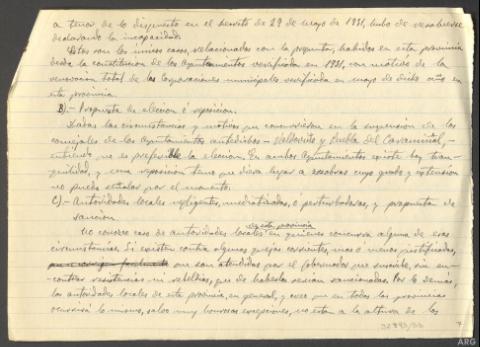 a tenor de lo dispuesto en el decreto de 29 de mayo de 1931, hubo de resolverse
declarando la incapacidad.
Estos son los únicos casos, relacionados con la pregunta, habidos en esta provincia
desde la constitución de los Ayuntamientos verificada en 1931, con motivo de la
renovación total de las Corporaciones municipales verificada en mayo de dicho año en
esta provincia.
B).- Propuesta de elección o reposición.
Dadas las circunstancias y motivos que concurrieron en la suspensión de los
concejales de los Ayuntamientos antedichos - Valdevido y Puebla del Caramiñal, -
entiendo no es preferible la elección. En ambos Ayuntamientos existe hoy tran-
quilidad, y una reposición tiene que dar lugar a zozobras cuyo grado y extensión
no puedo señalar por el momento.
C).- Autoridades locales negligentes, mediatizadas, o perturbadoras, y propuesta de
sanción.
No conozco caso de autoridades locales en esta provincia en quienes concurra alguna de esas
circunstancias. Si existen contra algunas quejas corrientes, mas o menos justificadas,
que son atendidas por el Gobernador que suscribe, sin en-
contrar resistencias ni rebeldías, que de haberlas serían sancionadas. Por lo demás,
las autoridades locales de esta provincia, en general, y creo que en todas las provincias
ocurrirá lo mismo, salvo muy honrosas excepciones, no están a la altura de las
7
ARG